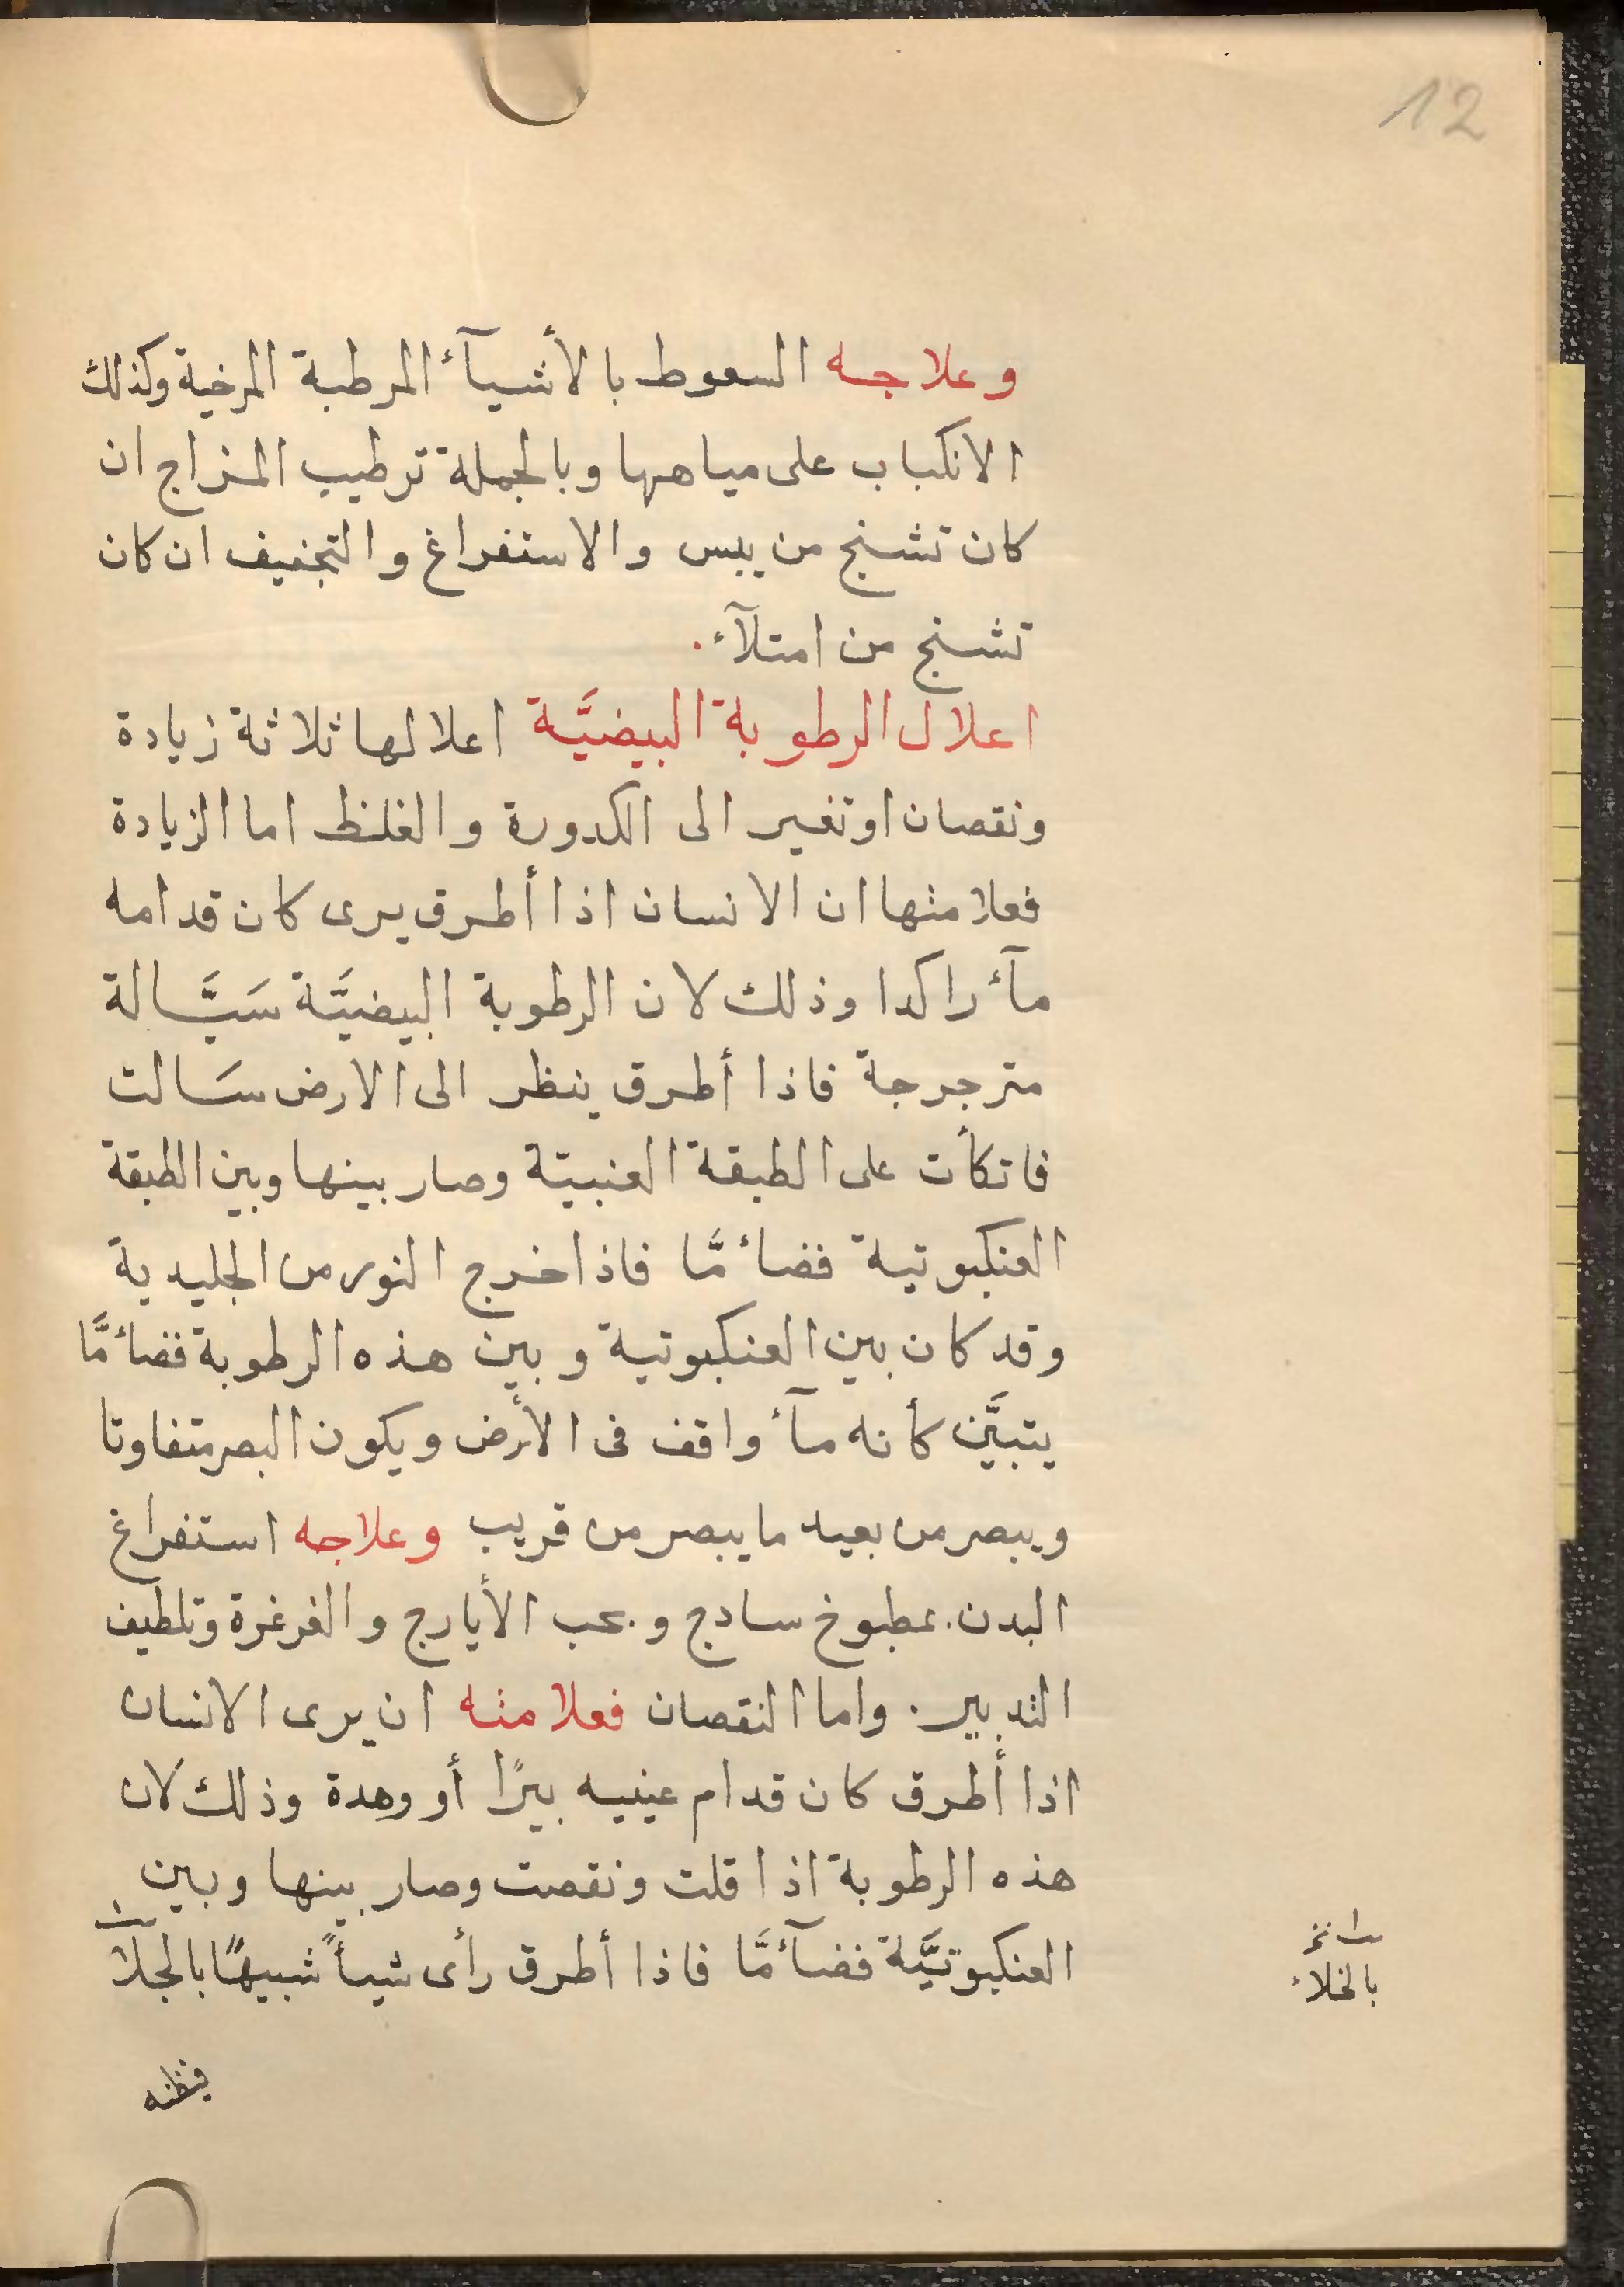 12
وعلاجه السعوط بالأشيآء المرطبة المرخية وكذلك
الانكباب على مياهها وبالجملة ترطيب المزاج ان
كان تشنج من يبس والاستفراغ والتجفيف ان كان
تشنج من امتلآء.
اعلال الرطوبة البيضيَّة اعلالها ثلاثة زيادة
ونقصان او تغير الى الكدورة والغلظ اما الزيادة
فعلامتها ان الانسان اذا أطرق يرى كان قدامه
مآء راكدا وذلك لان الرطوبة البيضيَّة سَيَّالة
مترجرجة فاذا أطرق ينظر الى الارض سَالت
فاتكأت على الطبقة العنبية وصار بينها وبين الطبقة
العنكبوتية فضاء مَّا فاذا خرج النور من الجليدية
وقد كان بين العنكبوتية وبين هذه الرطوبة فضاء مَّا
يتبيَّن كأنه مآء واقف فى الأرض ويكون البصر متفاوتا
ويبصر من بعيد ما يبصر من قريب وعلاجه استفراغ
البدن بمطبوخ ساذج وبحب الأيارج والغرغرة وتلطيف
التدبير. واما النقصان فعلامته ان يرى الانسان
اذا أطرق كان قدام عينيه بيرًا أو وهدة وذلك لان
هذه الرطوبة اذا قلت ونقصت وصار بينها وبين
العنكبوتيَّة فضآء مَّا فاذا أطرق رأى شيأً شبيهًا بالجلاء
بالخلاء
فيظنه